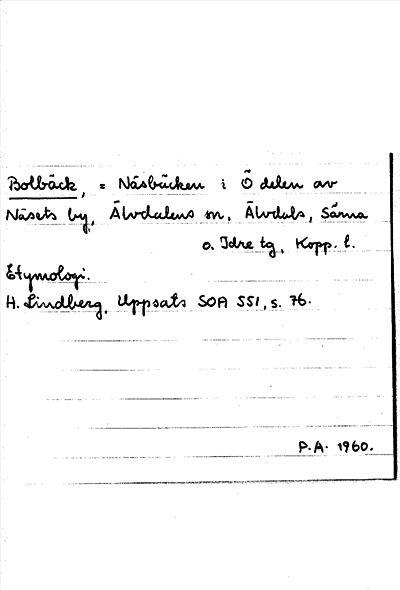 Bolbäck, = Näsbäcken i Ö delen av
Näsets by, Älvdalens sn, Älvdals, Särna
o. Idre tg, Kopp. l.
Etymologi.
H. Lindberg, Uppsats SOA 551, s. 76.
P.A. 1960.